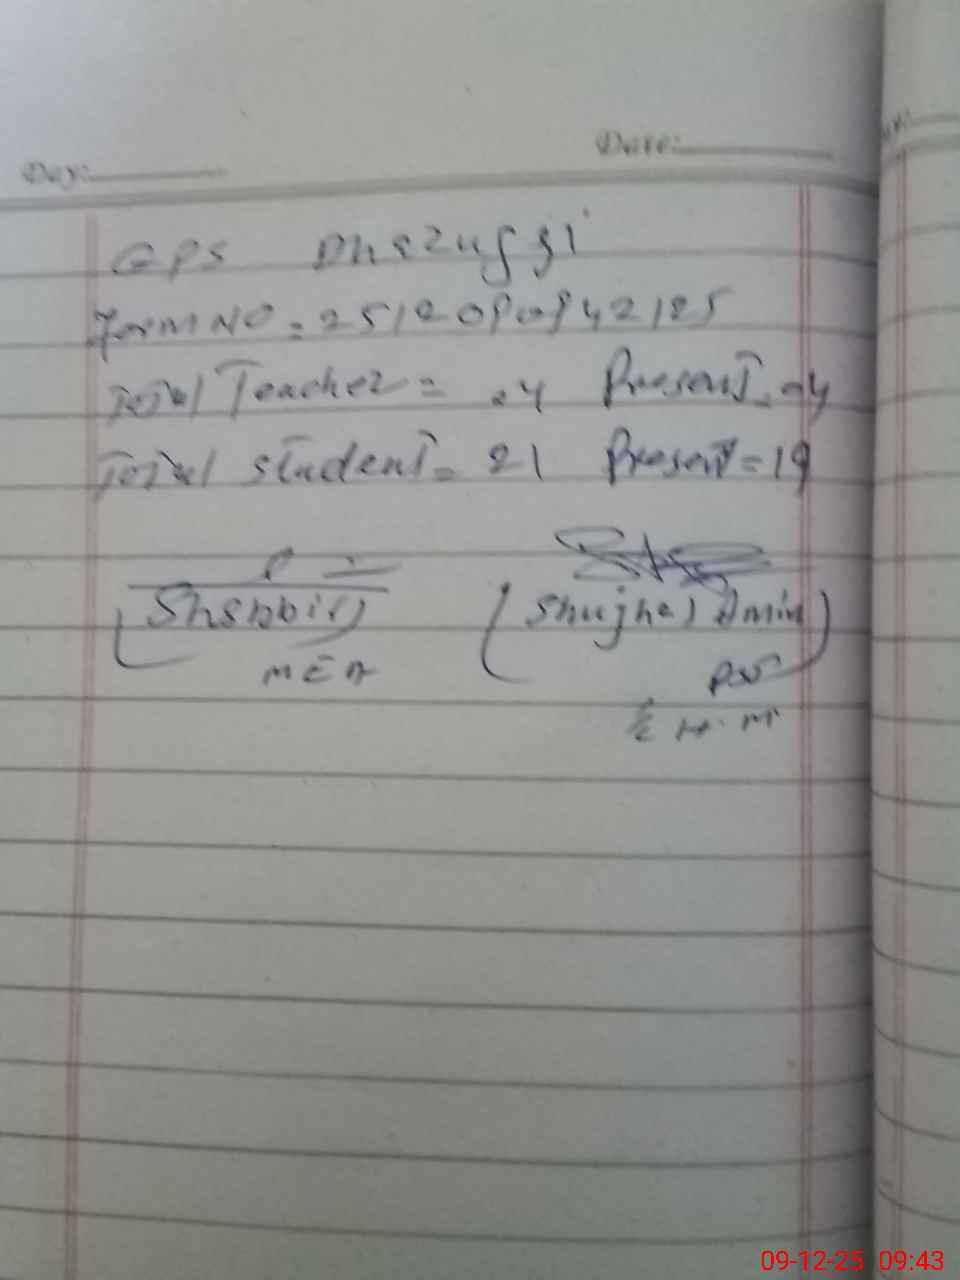 Day:
Date:
GPS
Form NO = 
Total Teacher = 04 Present = 04
Total Student = 21 Present = 19
(Shabbir)
(Shujha Amin)
MEA
H.M
09-12-25 09:43